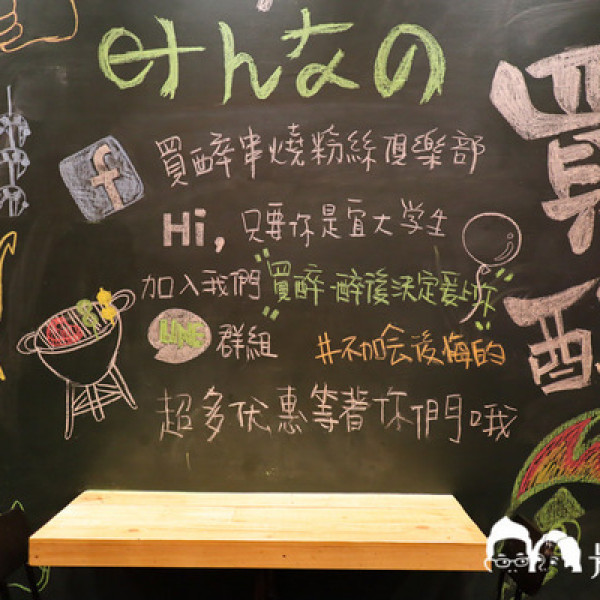 みんなの
f 買醉串燒粉絲俱樂部
Hi, 只要你是宜大学生
加入我們"買醉-醉後決定愛上你"
LINE 群組 #不加会後悔的
超多优惠等著你們哦
買
醉